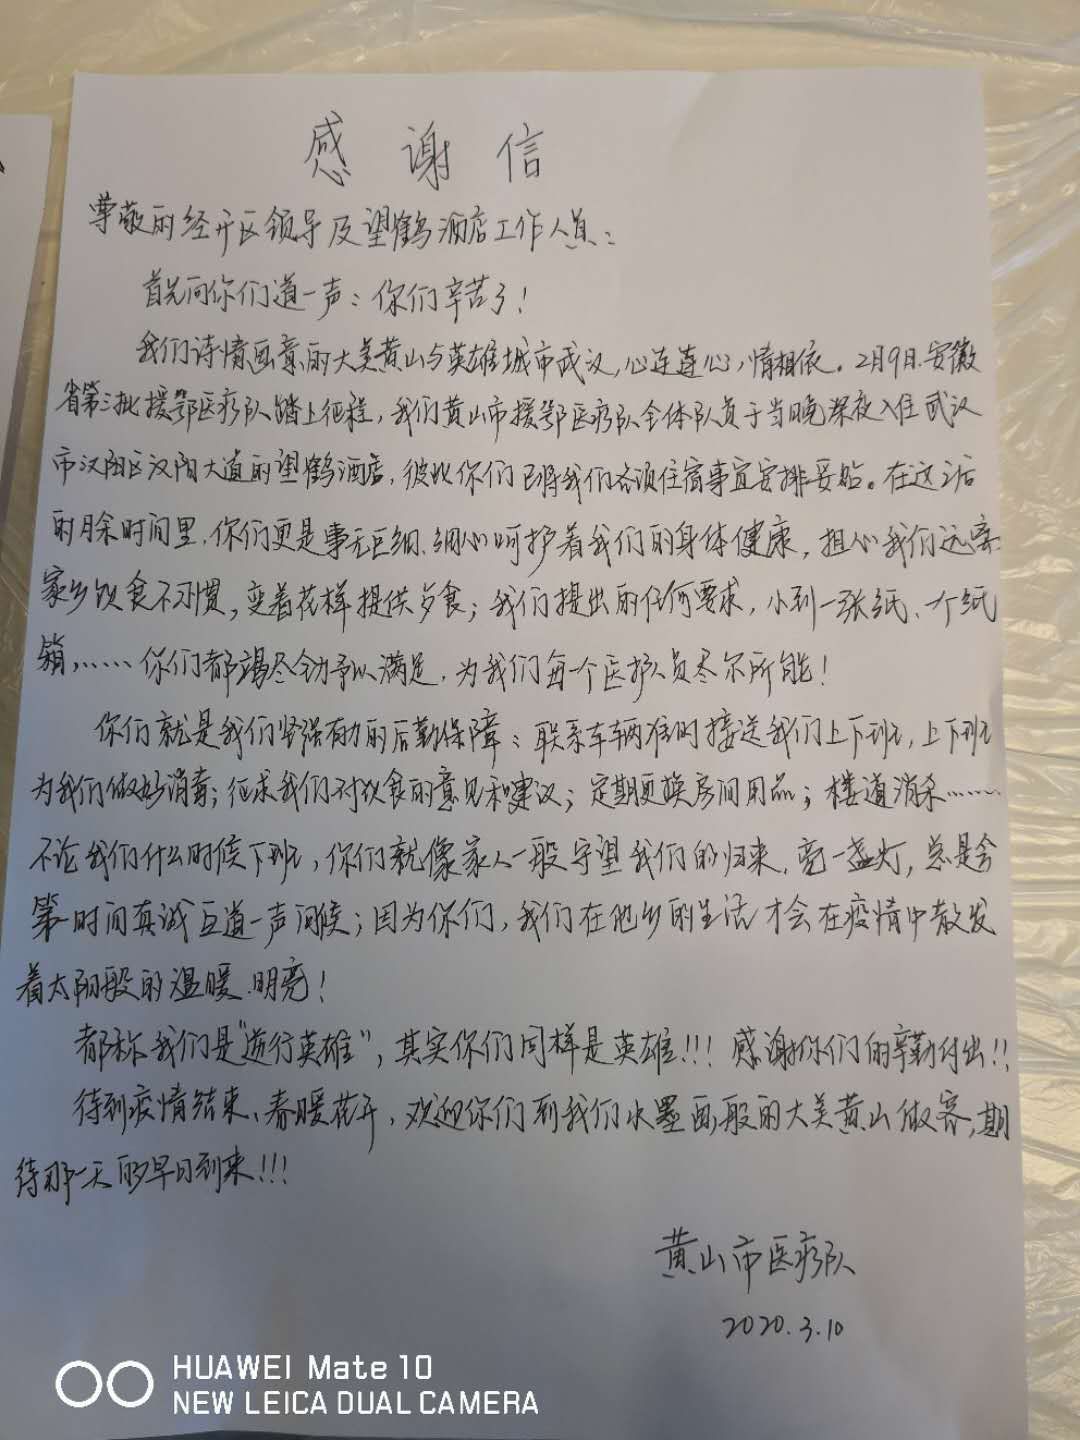 感谢信
尊敬的经开区领导及望鹤酒店工作人员：
首先向你们道一声：你们辛苦了！
我们诗情画意的大美黄山与英雄城市武汉，心连连心，情相依。2月9日.安徽
省第三批援鄂医疗队踏上征程，我们黄山市援鄂医疗队全体队员于当晚深夜入住武汉
市汉阳区汉阳大道的望鹤酒店，彼此你们已将我们各项住宿事宜安排妥贴。在这之后
的月余时间里.你们更是事无巨细、细心呵护着我们的身体健康，担心我们远离
家乡饮食不习惯，变着花样提供歺食；我们提出的任何要求，小到一张纸、一个纸
箱，……你们都竭尽全力予以满足，为我们每一个医护人员尽尔所能！
你们就是我们坚强有力的后勤保障：联系车辆准时接送我们上下班，上下班
为我们做好消毒；征求我们对饮食的意见和建议；定期更换房间用品；楼道消杀……
不论我们什么时候下班，你们就像家人一般守望我们的归来.亮一盏灯，总是会
第一时间真诚互道一声问候；因为你们，我们在他乡的生活才会在疫情中散发
着太阳般的温暖.明亮！
都称我们是“逆行英雄”，其实你们同样是英雄!!! 感谢你们的辛勤付出!!
待到疫情结束、春暖花开，欢迎你们到我们水墨画般的大美黄山做客，期
待那一天的早日到来!!!
黄山市医疗队
2020.3.10
HUAWEI Mate 10
NEW LEICA DUAL CAMERA